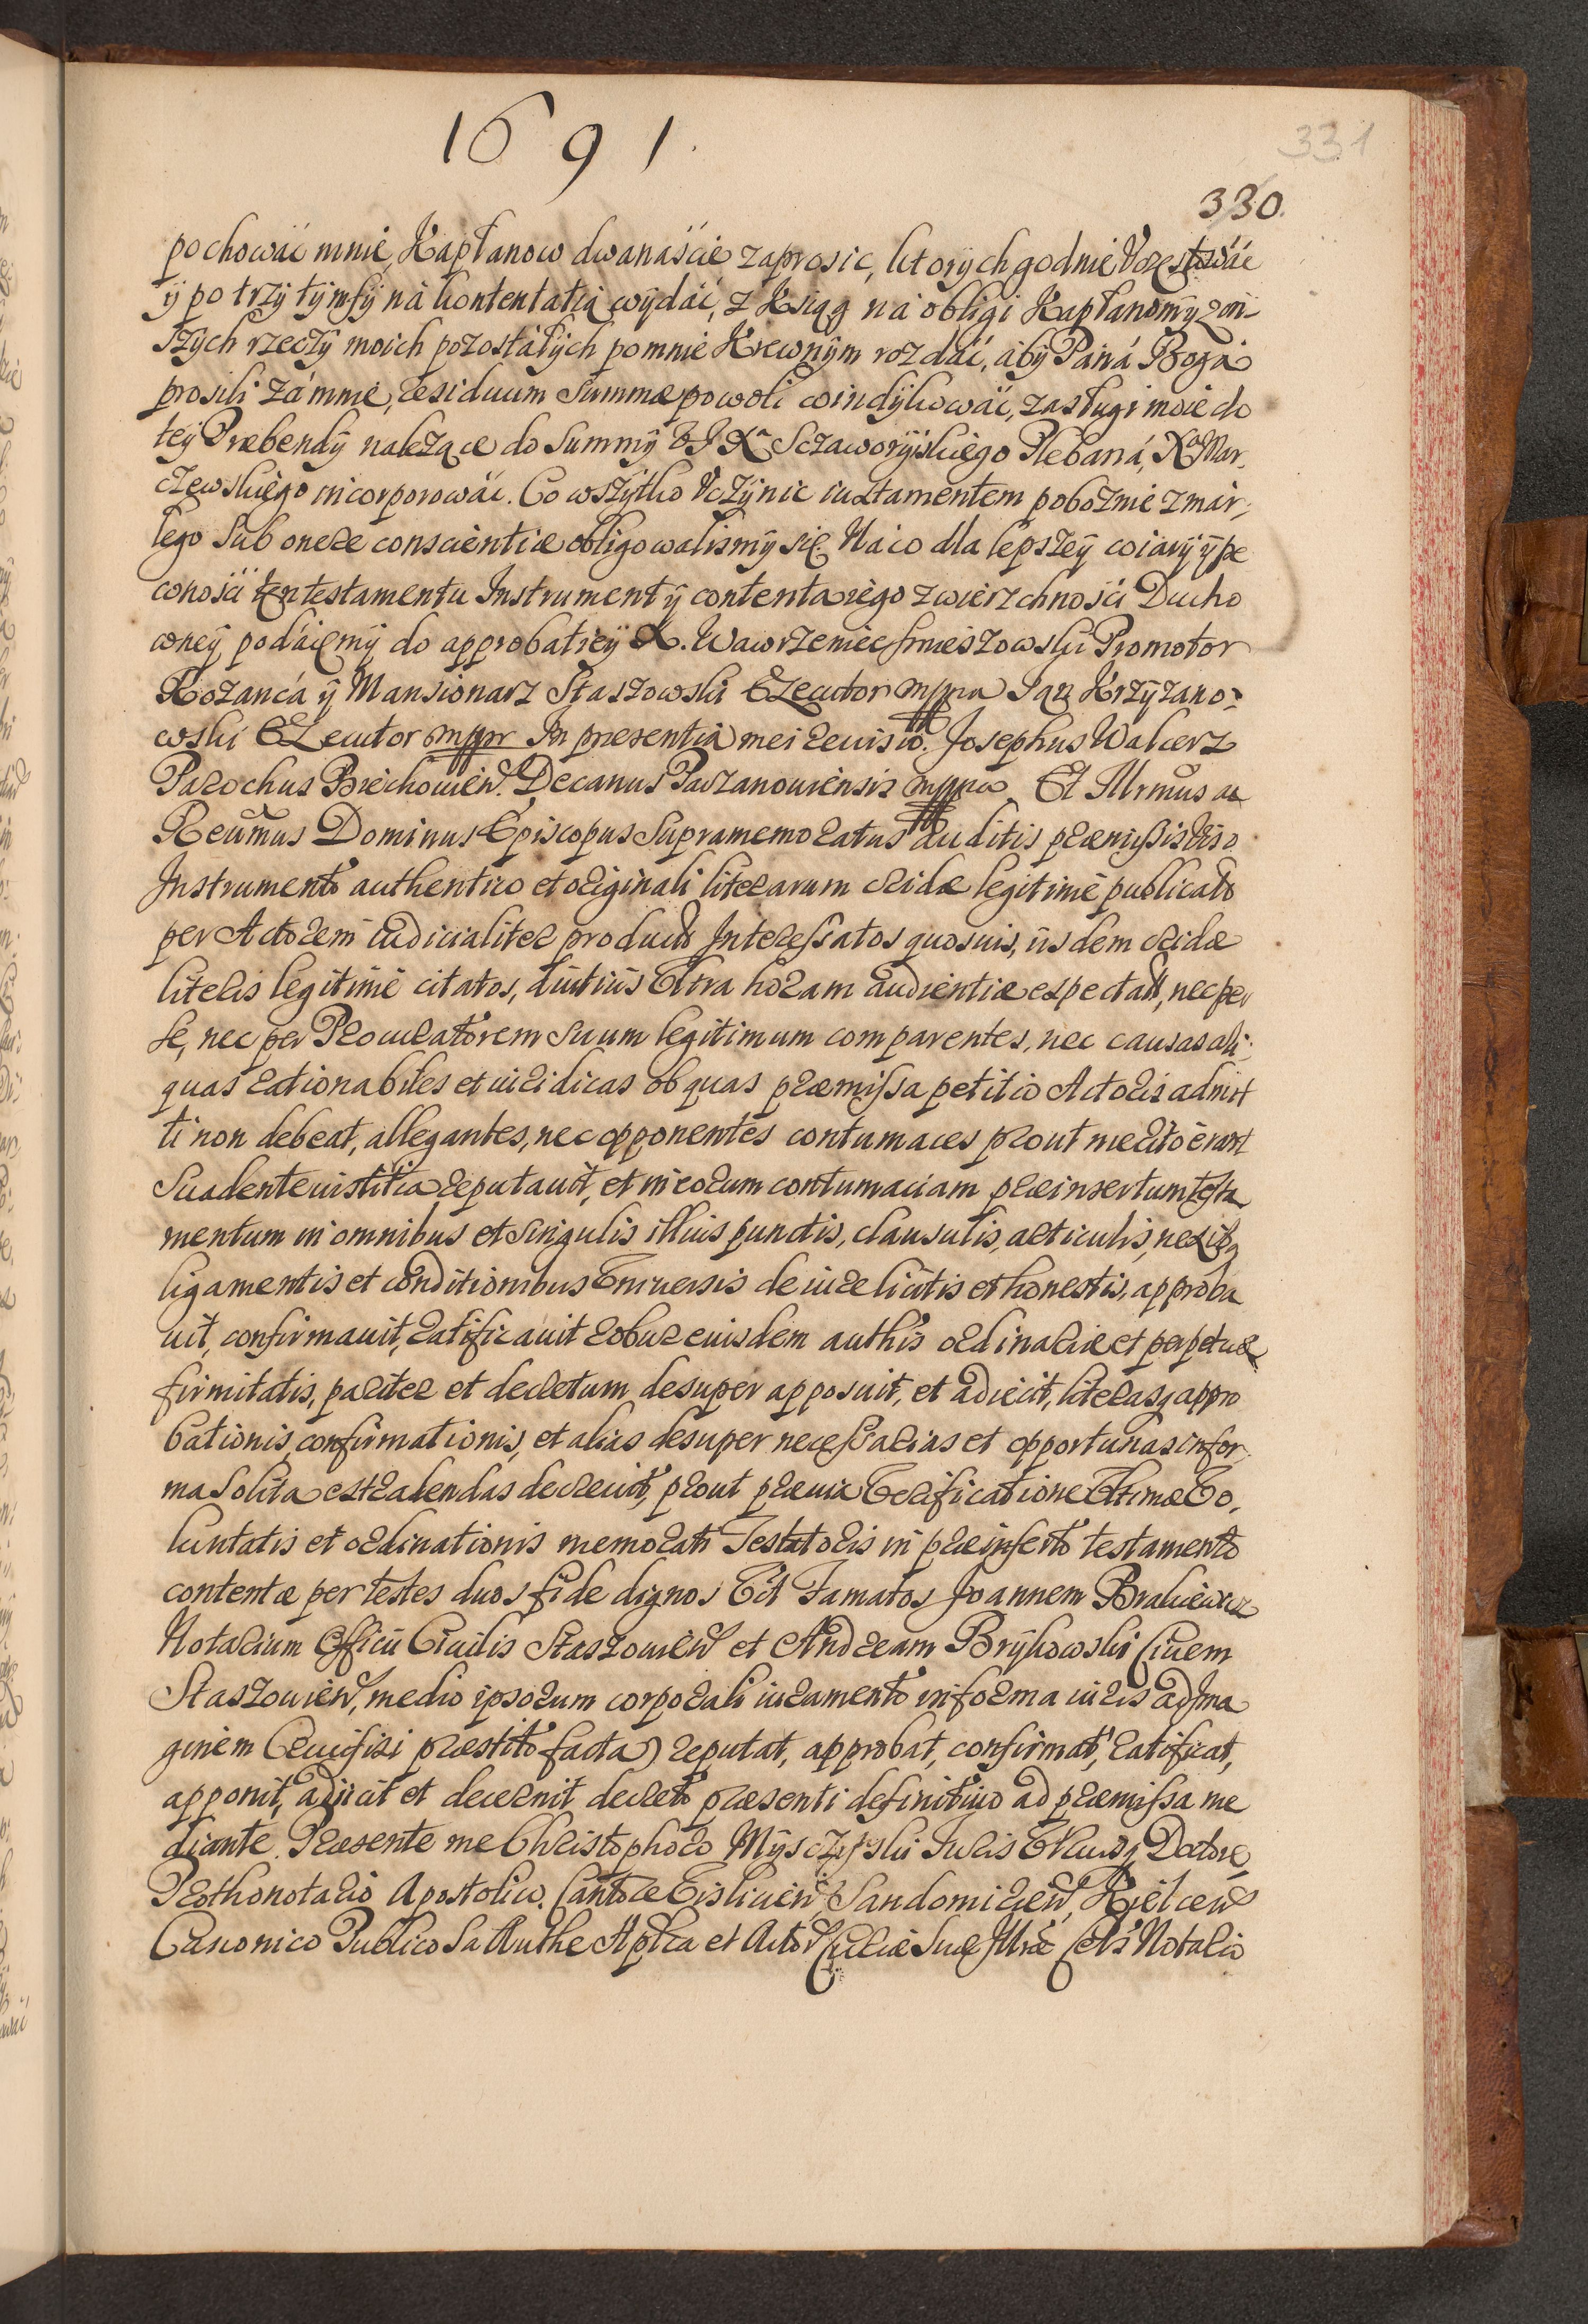 1691.
331
330.
pochować mnie, Kapłanow dwanaście zaprosic, ktorych godnie Vczęstowác
ÿ po trzÿ tÿmfÿ ná kontentatią wÿdáć, z Ksiąg ná obligi Kapłanom ÿ zin-
szÿch rzeczÿ moich pozostáłÿch pomnie Krewnÿm rozdáć, ábÿ Páná Bogá
prosili zá mnie, residuum summæ powoli windÿkowáć, zasługi moie do
teÿ Præbendÿ nalezące do Summÿ Sczaworÿiskiego Plebaná, Mar-
czewskiego incorporowác. Co wszÿtko Vczÿnic iuxta mentem poboznie zmár-
łego sub onere conscientiæ obligowalismÿ się. Ná co dla lepszeÿ wiarÿ ÿ pe
wnośći ten testamentu Instrument ÿ contenta iego zwierzchnośći Ducho
wneÿ podáięmÿ do approbatieÿ X. Wawrzeniec Promotor
Rozanca ÿ Mansionarz Staszowski Executor mppria Jan Krzÿzano-
wski Executor mppr In præsentia mei reuisio. Josephus Walcerz
Parochus Beichouien. Decanus Paczanouiensis mppria Et Illrmus ac
Reũmus Dominus Episcopus Supramemoratus auditis præmissis viso
Instrumento authentico et originali literarum cridæ legitimè publicato
per Actorem iudicialiter producto Interessatos quosuis, iisdem cridæ
literis legitimè citatos, diutius Vltra horam audientiæ expectatos, nec per
se, nec per Procuratorem suum legitimum comparentes, nec causas ali-
quas rationabiles et iuridicas ob quas præmissa petitio Actoris admit
ti non debeat, allegantes, nec opponentes contumaces prout merito erant
suadente iustitia reputauit, et in eorum contumaciam præinsertum testa
mentum in omnibus et singulis illius punctis, clausulis, articulis, nexibq
ligamentis et conditionibus Vniuersis de iure licitis et honestis, approba
uit, confirmauit, ratificauit robur eiusdem authis ordinariæ et perpetuæ
firmitatis, pariter et decretum desuper apposuit, et adiecit, literasq appro
bationis, confirmationis, et alias desuper necessarias et opportunas in for-
ma solita extradendas decreuit, prout præuia Verificatione Vltimæ Vo-
luntatis et ordinationis memorati Testatoris in præinserto testamento
contentæ per testes duos fide dignos Vid Famatos Joannem Brakiewicz
Notarium Officii Ciuilis Staszouien et Andream Brÿkowski Ciuem
Staszouien, medio ipsorum corporali iuramento in forma iuris ad Ima
ginem Crucifixi præstito facta) reputat, approbat, confirmat, ratificat,
apponit, adiicit et decernit decreto præsenti definitiuo ad præmissa me
diante. Præsente me Christophoro Mÿsczÿski Juris Vtriusq Doctore
Prothonotario Apostolico, Cantore Visliciẽn, Sandomiriẽn, Kielceñ
Canonico Publico Sa Authe Aplica et Actor Curiæ Suæ Illræ Celsis Notario